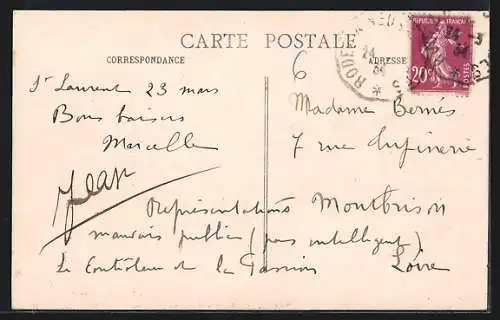 CARTE POSTALE
CORRESPONDANCE
ADRESSE
REPUBLIQUE FRANÇAISE
20c
POSTES
24 -3
34
6
St Laurent 23 mars
Bons baisers
Marcelle
Jean
Madame Bernés
7 rue
Montbrison
Loire
Représentations
mauvais public (pas intelligent)
Le Contrôleur de la